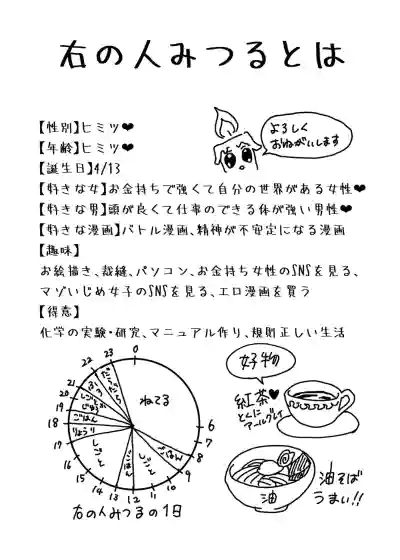 右の人みつるとは
【性別】ヒミツ❤
【年齢】ヒミツ❤
【誕生日】4/13
よろしく
おねがいします
【好きな女】お金持ちで強くて自分の世界がある女性❤
【好きな男】頭が良くて仕事のできる体が強い男性❤
【好きな漫画】バトル漫画、精神が不安定になる漫画
【趣味】
お絵描き、裁縫、パソコン、お金持ち女性のSNSを見る、
マゾいじめ女子のSNSを見る、エロ漫画を買う
【得意】
化学の実験・研究、マニュアル作り、規則正しい生活
0
6
7
8
9
10
11
12
13
14
15
16
17
18
19
20
21
22
23
ねてる
ごはん
しごと
ごはん
しごと
りょうり
ごはん
だらだら
右の人みつるの1日
好物
紅茶❤
とくに
アールグレイ
油
油そば
うまい!!